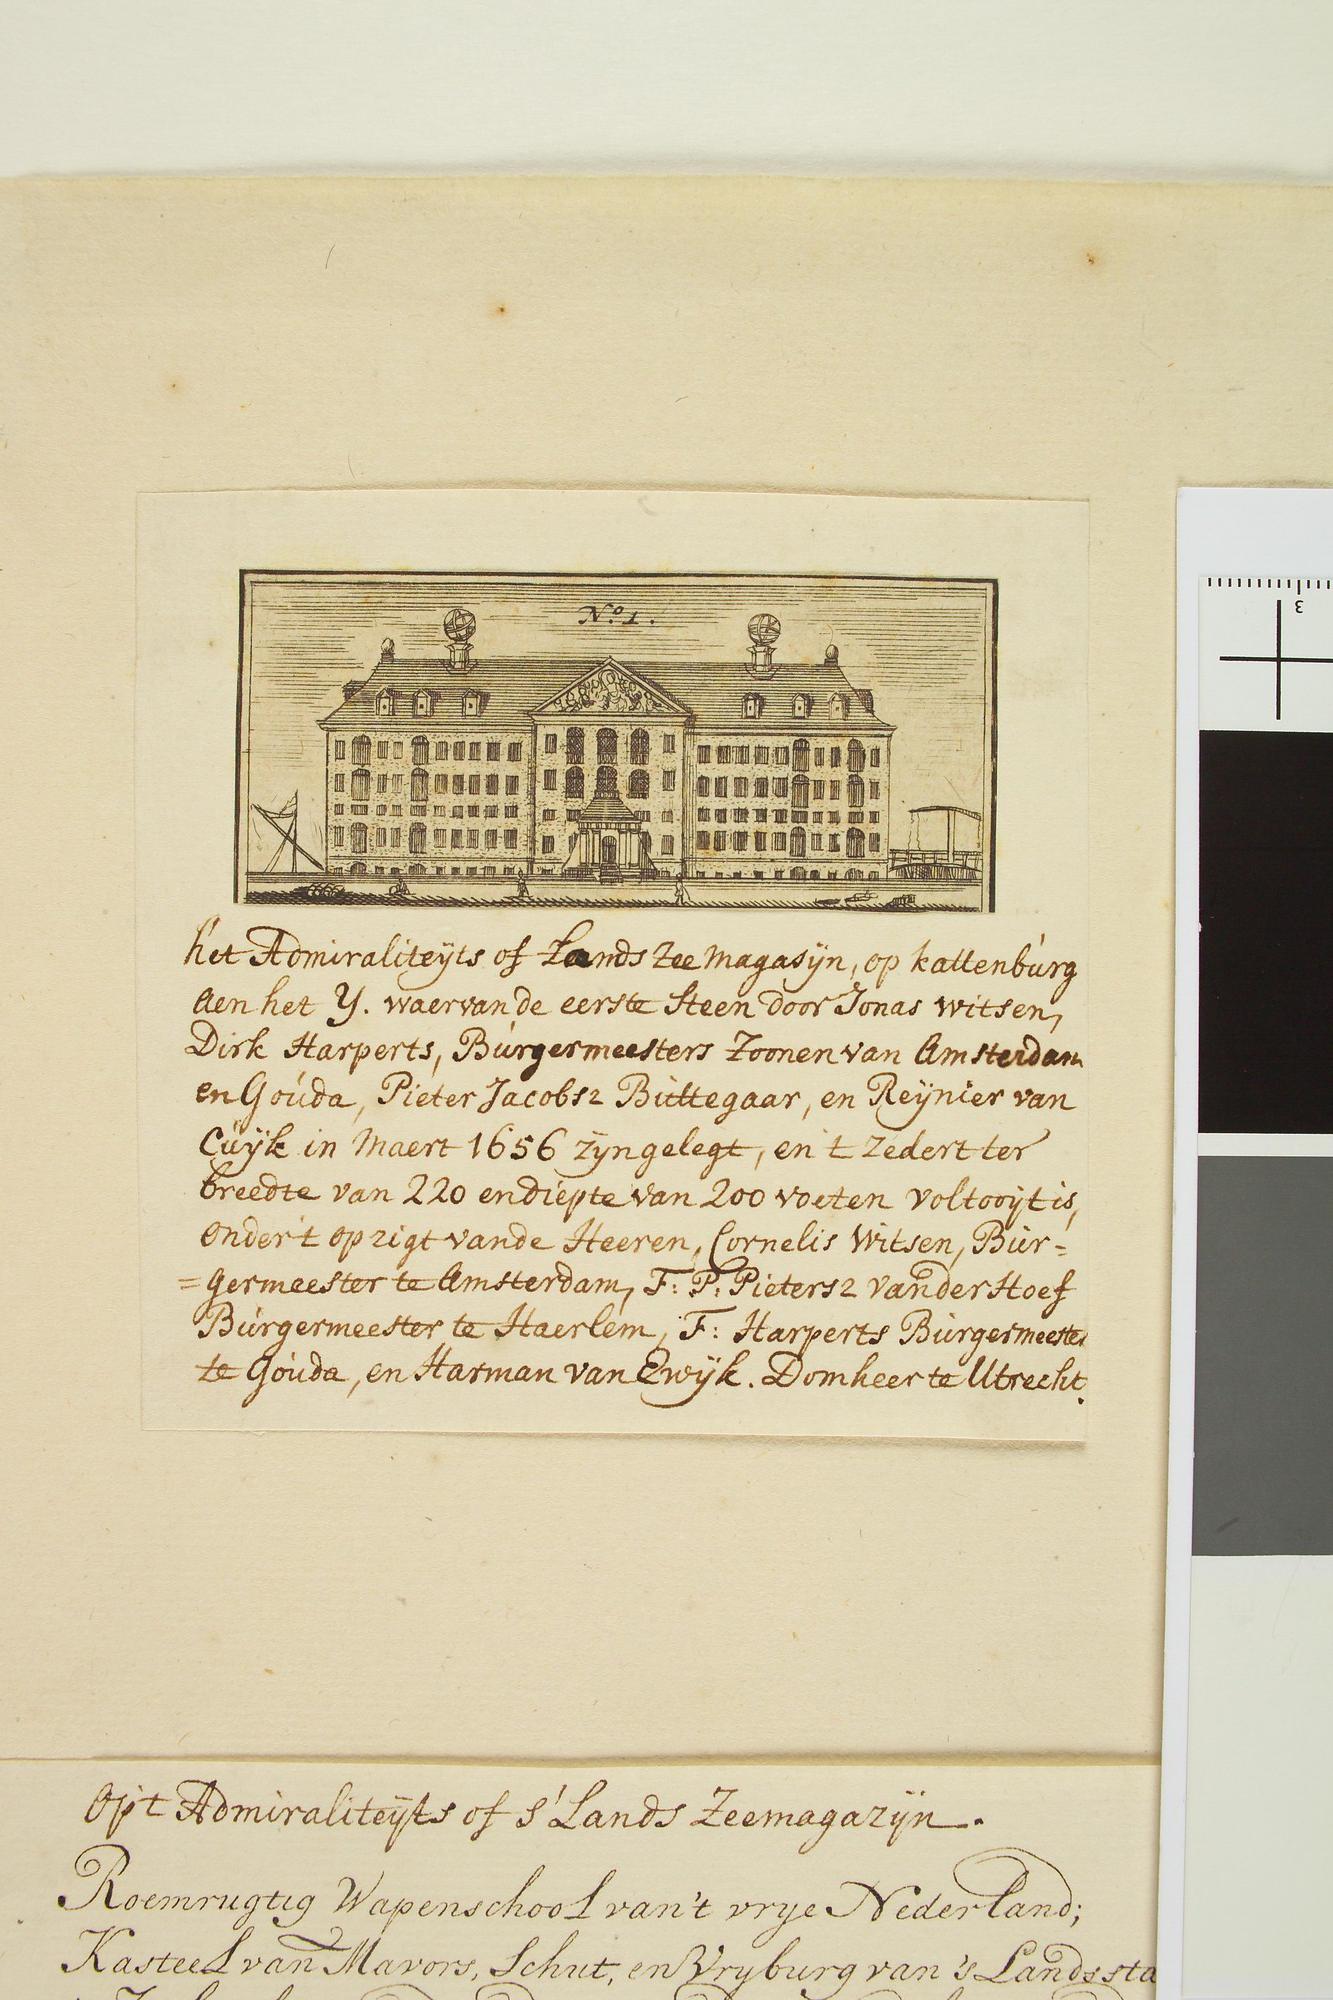 No. 1.
het Admiraliteÿts of Lands Zee Magasÿn, op kattenburg
aen het Y. waervan de eerste Steen door Jonas Witsen,
Dirk Harperts, Burgermeesters Zoonen van Amsterdam
en Gouda, Pieter Jacobsz Buttegaar, en Reÿnier van
Cuÿk in Maert 1656 zÿn gelegt, en 't zedert ter
breedte van 220 en diepte van 200 voeten voltooÿt is,
onder 't opzigt vande Heeren, Cornelis Witsen, Bur=
=germeester te Amsterdam, F: P: Pietersz vander Hoef
Burgermeester te Haerlem, F: Harperts Burgermeester
te Gouda, en Harman van Zwÿk. Domheer te Utrecht.
Op 't Admiraliteÿts of s' Lands Zeemagazÿn.
Roemrugtig Wapenschool van't vrye Nederland;
Kasteel van Mavors, Schut, en Vryburg van 's Lands sta
3